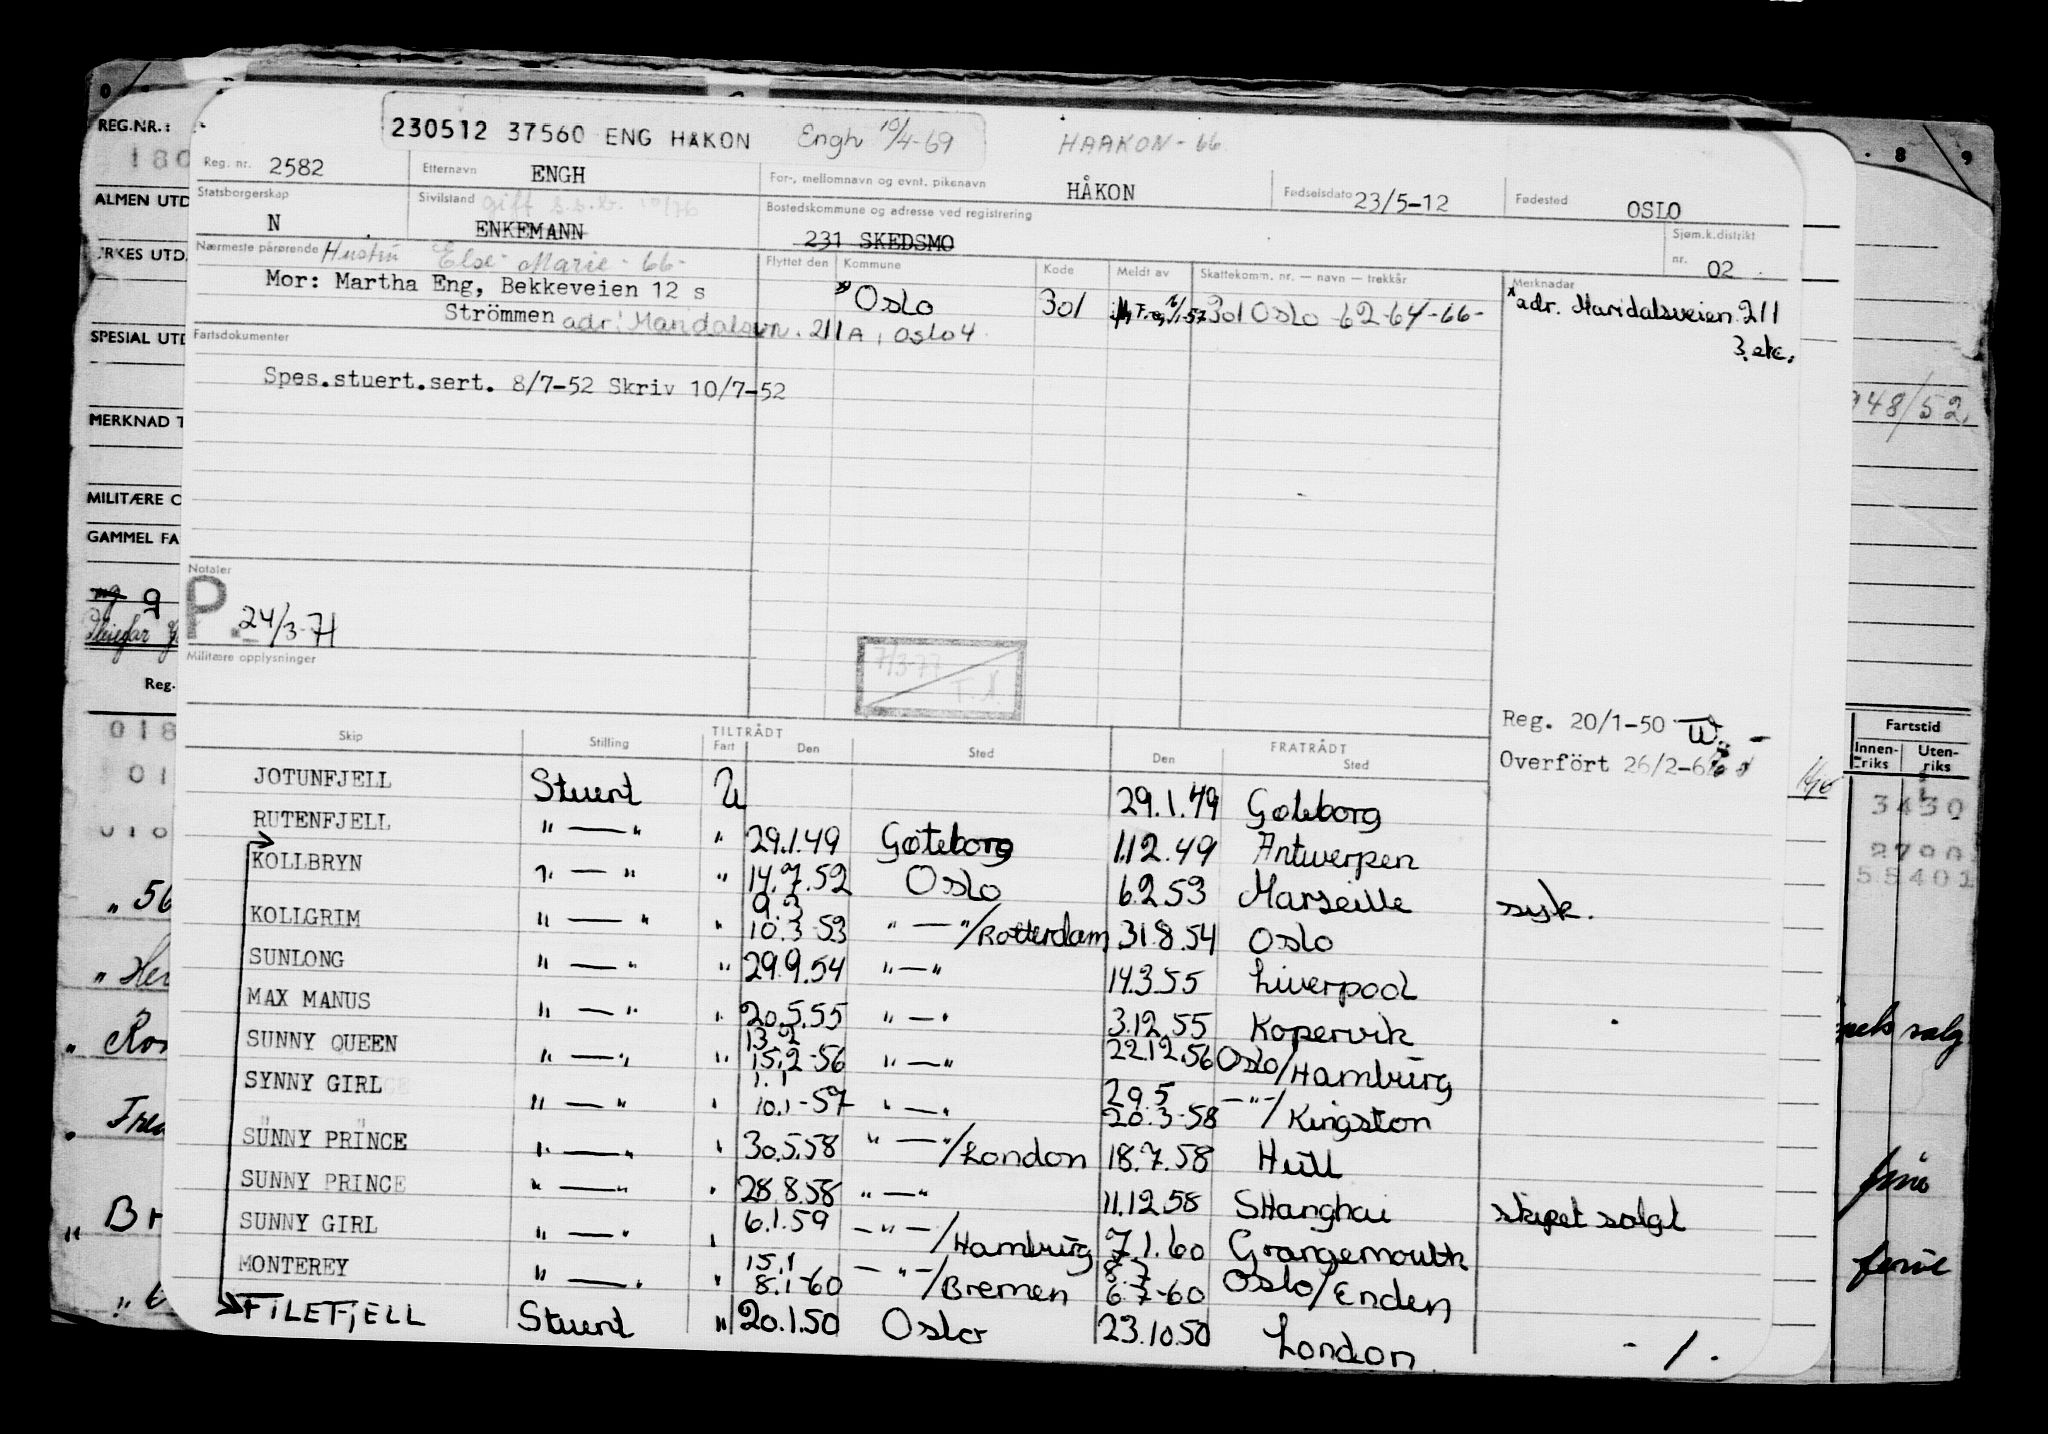 230512 37560 ENG HÅKON Engh 10/4-69 HAAKON-66
Reg. nr. 2582 Etternavn ENGH For-, mellomnavn og evnt. pikenavn HÅKON Fødselsdato 23/5-12 Fødested OSLO
Statsborgerskap N Sivilstand gift s.s.b. 10/76 ENKEMANN Bostedskommune og adresse ved registrering 231 SKEDSMO Sjøm.k.distrikt nr. 02
Nærmeste pårørende Hustru Else Marie -66-
Mor: Martha Eng, Bekkeveien 12 s
Strömmen adr. Maridalsvn. 211 A, Oslo 4
Flyttet den Kommune Kode Meldt av Skattekomm. nr. — navn — trekkår Merknader
Oslo 301 301 Oslo -62-64-66- adr. Maridalsveien 211
3. etc.
Fartsdokumenter
Spes.stuert.sert. 8/7-52 Skriv 10/7-52
Notater
P. 24/3-71
Militære opplysninger
7/3-77
Reg. 20/1-50
Overfört 26/2-6
Skip Stilling TILTRÅDT Fart Den Sted FRATRÅDT Den Sted
JOTUNFJELL Stuert U 29.1.49 Gøteborg
RUTENFJELL " — " " 29.1.49 Gøteborg 1.12.49 Antwerpen
KOLLBRYN " — " " 14.7.52 Oslo 6.2.53 Marseille syk.
KOLLGRIM " — " " 9.3 10.3-53 " — "/Rotterdam 31.8.54 Oslo
SUNLONG " — " " 29.9.54 " — " 14.3.55 Liverpool
MAX MANUS " — " " 20.5.55 " — " 3.12.55 Kopervik
SUNNY QUEEN " — " " 13.2 15.2-56 " — " 22.12.56 Oslo/Hamburg
SYNNY GIRL " — " " 1.1 10.1-57 " — " 29.5 20.3-58 — " —/Kingston
SUNNY PRINCE " — " " 30.5.58 " — "/London 18.7.58 Hull
SUNNY PRINCE " — " " 28.8.58 " — " 11.12.58 SHanghai skipet solgt
SUNNY GIRL " — " " 6.1.59 — " —/Hamburg 7.1.60 Grangemouth
MONTEREY " — " " 15.1 8.1-60 — " —/Bremen 8.7 6.7-60 Oslo/Enden
FILEFJELL Stuert " 20.1.50 Oslo 23.10.50 London - / -
REG.NR.:
180
ALMEN UTD
YRKES UTD.
SPESIAL UTD
MERKNAD T
MILITÆRE O
GAMMEL FA
Reg.
018
01
010
" 56
" Her
" Ros
" Br
8 9
948/52
Fartstid
Innen-riks Uten-riks
3430
2790
55401
salg
ferie